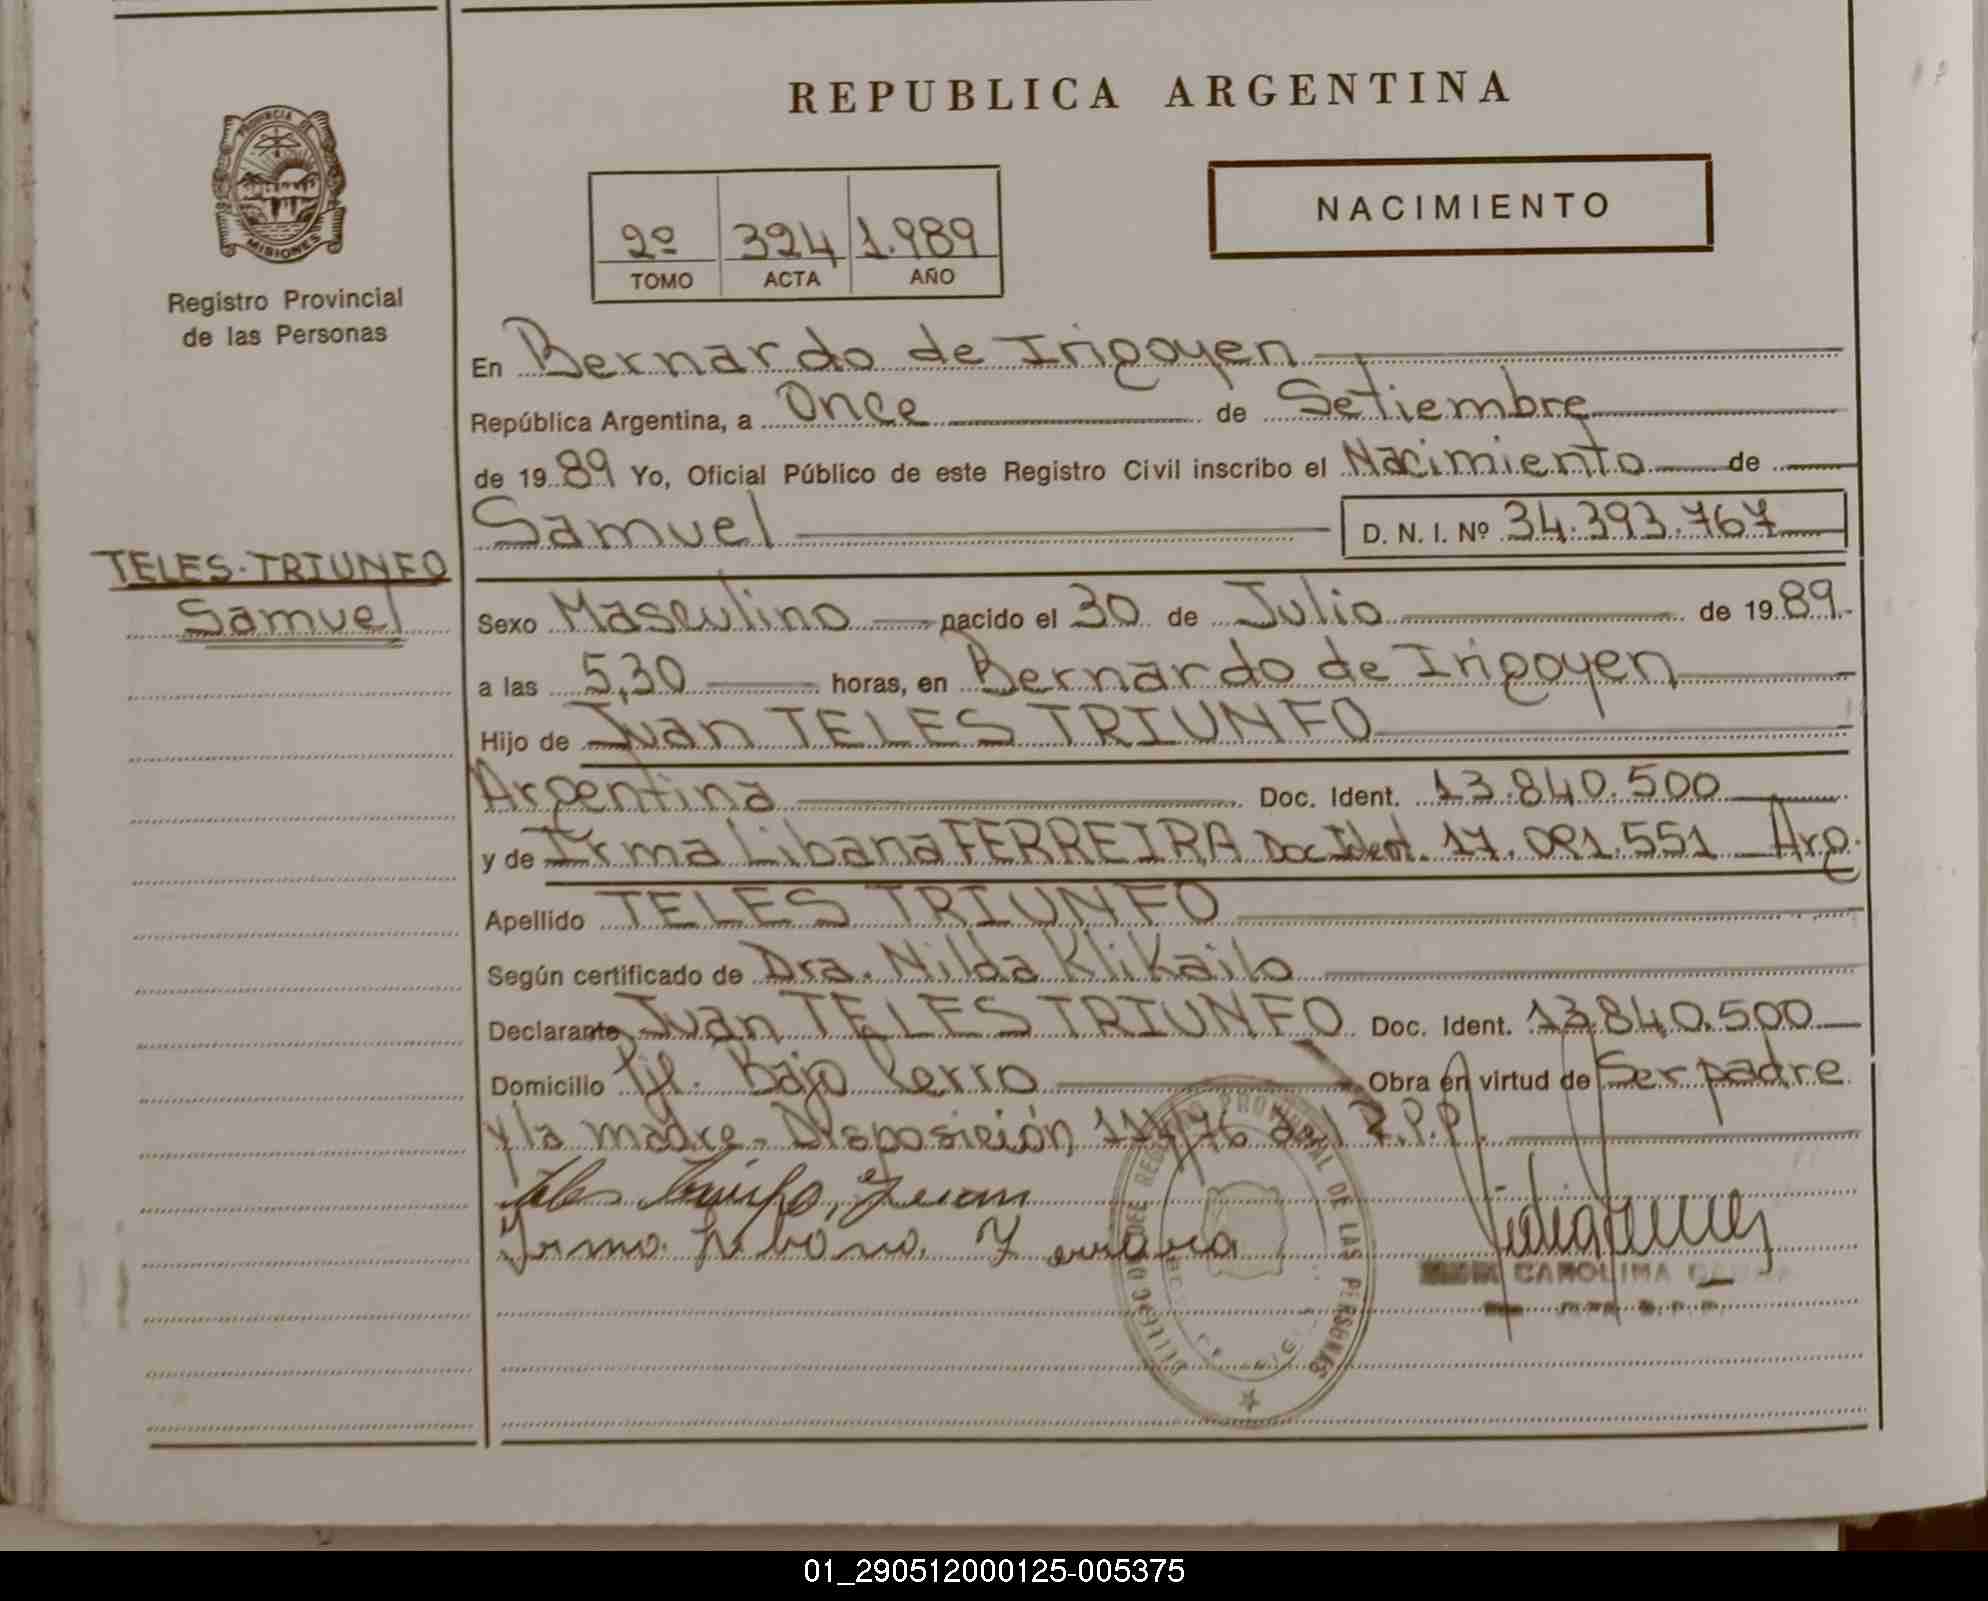 REPUBLICA ARGENTINA
PROVINCIA DE
MISIONES
Registro Provincial
de las Personas
NACIMIENTO
2º 324 1.989
TOMO ACTA AÑO
En Bernardo de Irigoyen
República Argentina, a Once de Setiembre
de 1989 Yo, Oficial Público de este Registro Civil inscribo el Nacimiento de
Samuel D. N. I. Nº 34.393.767
TELES-TRIUNFO
Samuel
Sexo Masculino nacido el 30 de Julio de 1989.-
a las 5,30 horas, en Bernardo de Irigoyen
Hijo de Juan TELES TRIUNFO
Argentina Doc. Ident. 13.840.500
y de Irma Libana FERREIRA Doc Ident. 17.091.551 Arg.
Apellido TELES TRIUNFO
Según certificado de Dra. Nilda Klikailo
Declarante Juan TELES TRIUNFO Doc. Ident. 13.840.500
Domicilio Pje. Bajo Cerro Obra en virtud de Ser padre
y la madre. Disposición 114/76 del R.P.P.
Teles Triunfo, Juan
Irma
REGISTRO PROVINCIAL DE LAS PERSONAS
CAROLINA
01_290512000125-005375